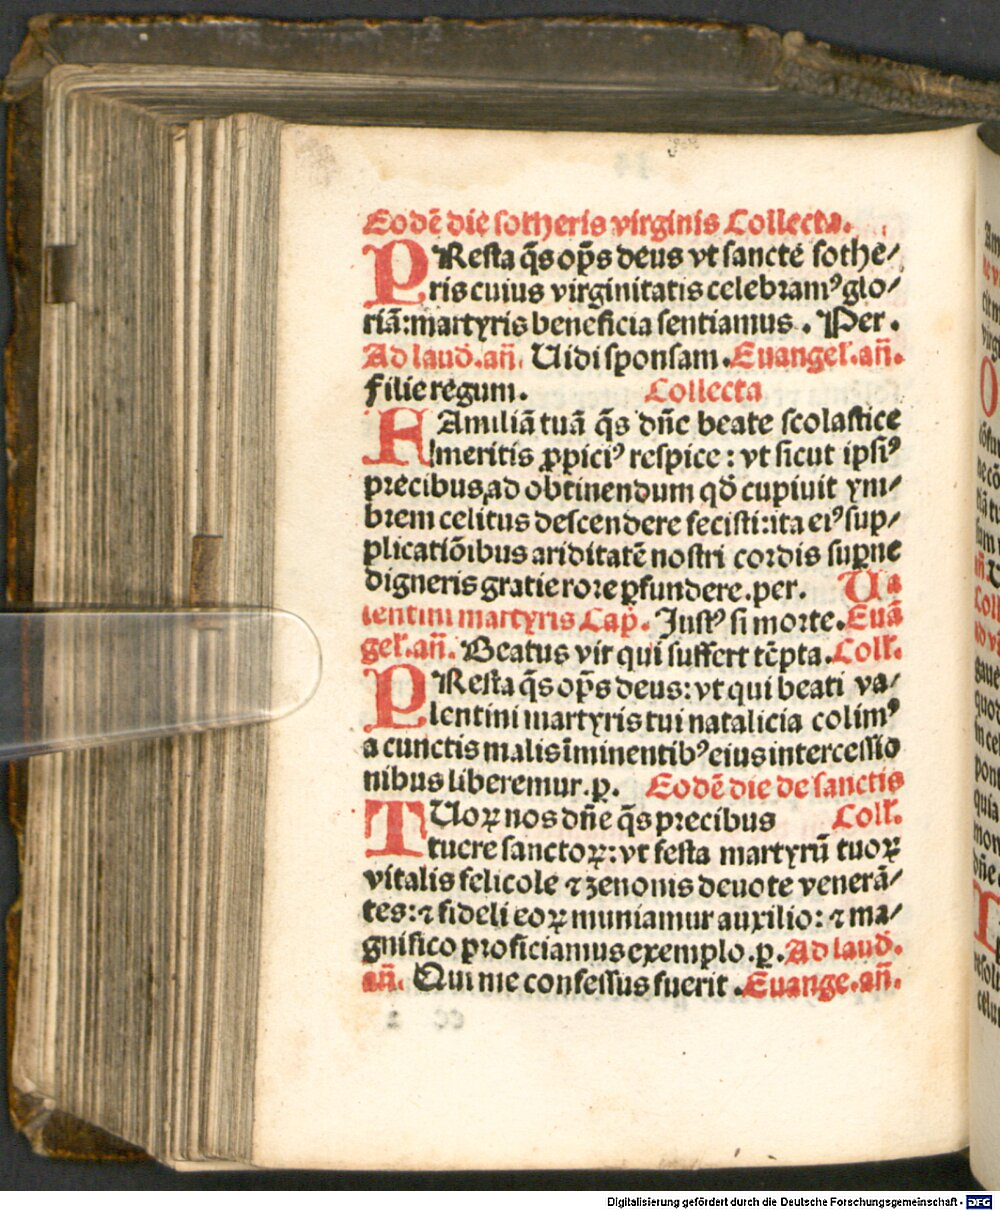 Eodē die sotheris virginis Collecta.
PResta q̄s op̄s deus vt sancte sothe/
ris cuius virginitatis celebramꝰ glo/
riā: martyris beneficia sentiamus. Per.
Ad laud̄. an̄. Uidi sponsam. Euangel̄. an̄.
Filie regum. Collecta
FAmiliā tuā q̄s dn̄e beate scolastice
meritis ꝓpiciꝰ respice: vt sicut ipsiꝰ
precibus ad obtinendum qd̄ cupiuit ym/
brem celitus descendere fecisti: ita eiꝰ sup/
plicatiōibus ariditatē nostri cordis sup̄ne
digneris gratie rore ꝑfundere. per. Ua
lentini martyris Cap̄. Justꝰ si morte. Euā
gel̄. an̄. Beatus vir qui suffert tēpta. Coll̄.
PResta q̄s op̄s deus: vt qui beati va/
lentini martyris tui natalicia colimꝰ
a cunctis malis īminentibꝰ eius intercessio
nibus liberemur. ꝑ. Eodē die de sanctis
TUoꝝ nos dn̄e q̄s precibus Coll̄.
tuere sanctoꝝ: vt festa martyrū tuoꝝ
vitalis felicole ⁊ zenonis deuote venerā/
tes: ⁊ fideli eoꝝ muniamur auxilio: ⁊ ma/
gnifico proficiamus exemplo. ꝑ. Ad laud̄.
an̄. Qui me confessus fuerit. Euange. an̄.
Digitalisierung gefördert durch die Deutsche Forschungsgemeinschaft - DFG